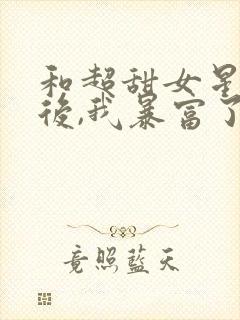 和超甜女星
後,我暴富了
竟照藍天